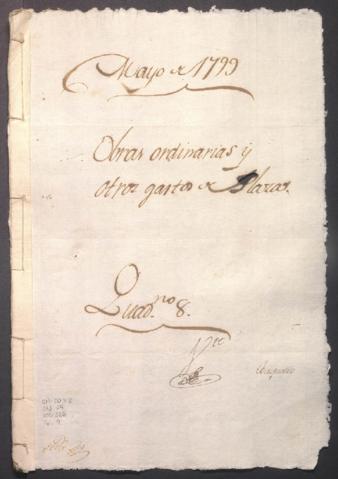 Mayo de 1799
Obras ordinarias y
otros gastos de Plazas.
Quad.no 8.